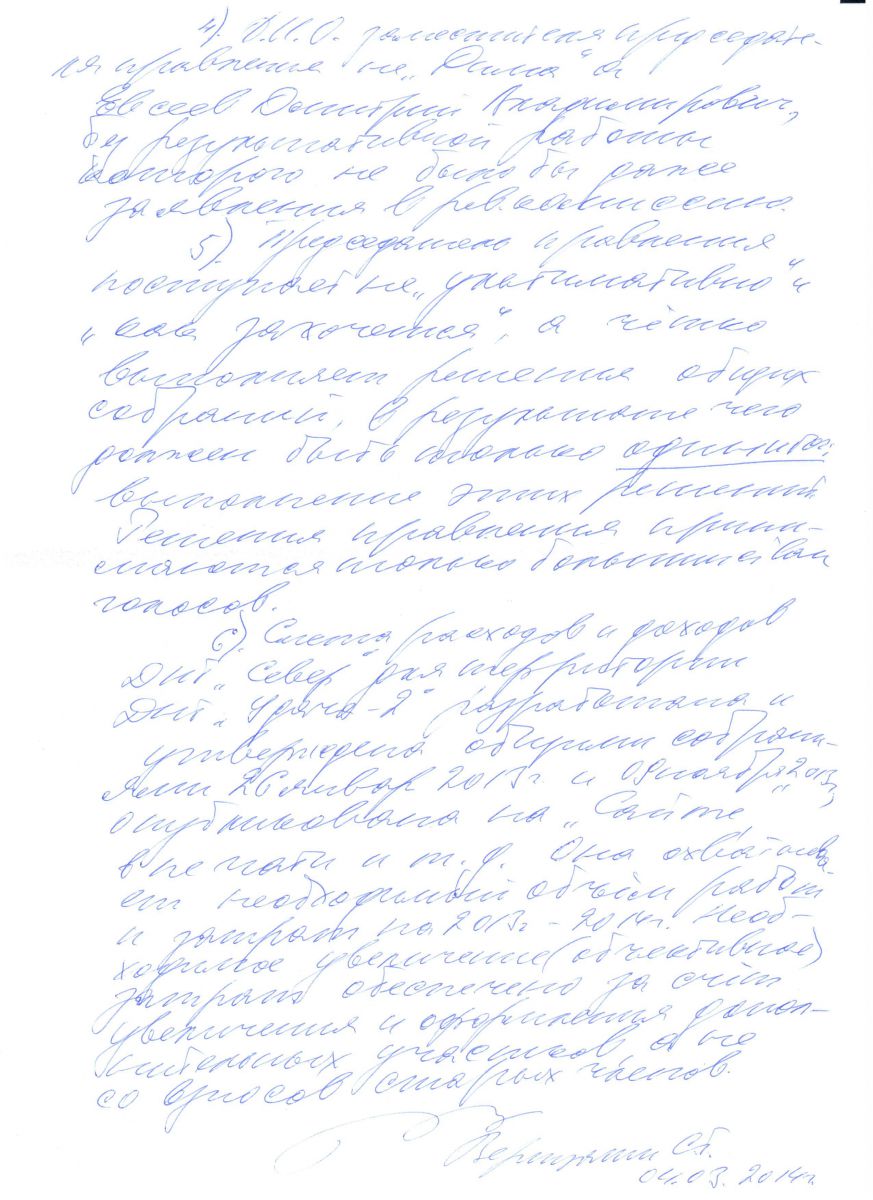 4). Ф.И.О. заместителя председате-
ля правления не „Дима" а
Евсеев Дмитрий Владимирович,
без результативной работы
которого не было бы даже
заявления в рев.комиссию.
5). Председатель правления
поступает не „ультимативно" и
„как захочется", а чётко
выполняет решения общих
собраний, в результате чего
должен быть только один итог:
выполнение этих решений.
Решения правления прини-
маются только большинством
голосов.
6). Смета расходов и доходов
ДНТ „Север" для территории
ДНТ „Удача-2" разработана и
утверждена общими собрани-
ями 26 январ 2013г и 09 ноября 2013г,
опубликована на „Сайте",
в печати и т.д. Она охватыва-
ет необходимый объём работ
и затрат на 2013г - 2014г. Необ-
ходимое увеличение (объективное)
затрат обеспечено за счёт
увеличения и оформления допол-
нительных участков, а не
со взносов старых членов.
С.Г.
04.03.2014г.